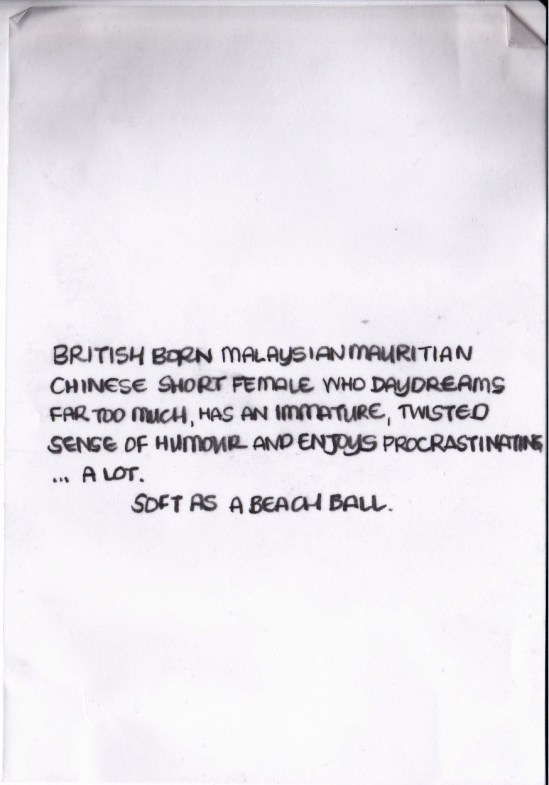 BRITISH BORN MALAYSIAN MAURITIAN
CHINESE SHORT FEMALE WHO DAYDREAMS
FAR TOO MUCH, HAS AN IMMATURE, TWISTED
SENSE OF HUMOUR AND ENJOYS PROCRASTINATING
... A LOT.
SOFT AS A BEACH BALL.